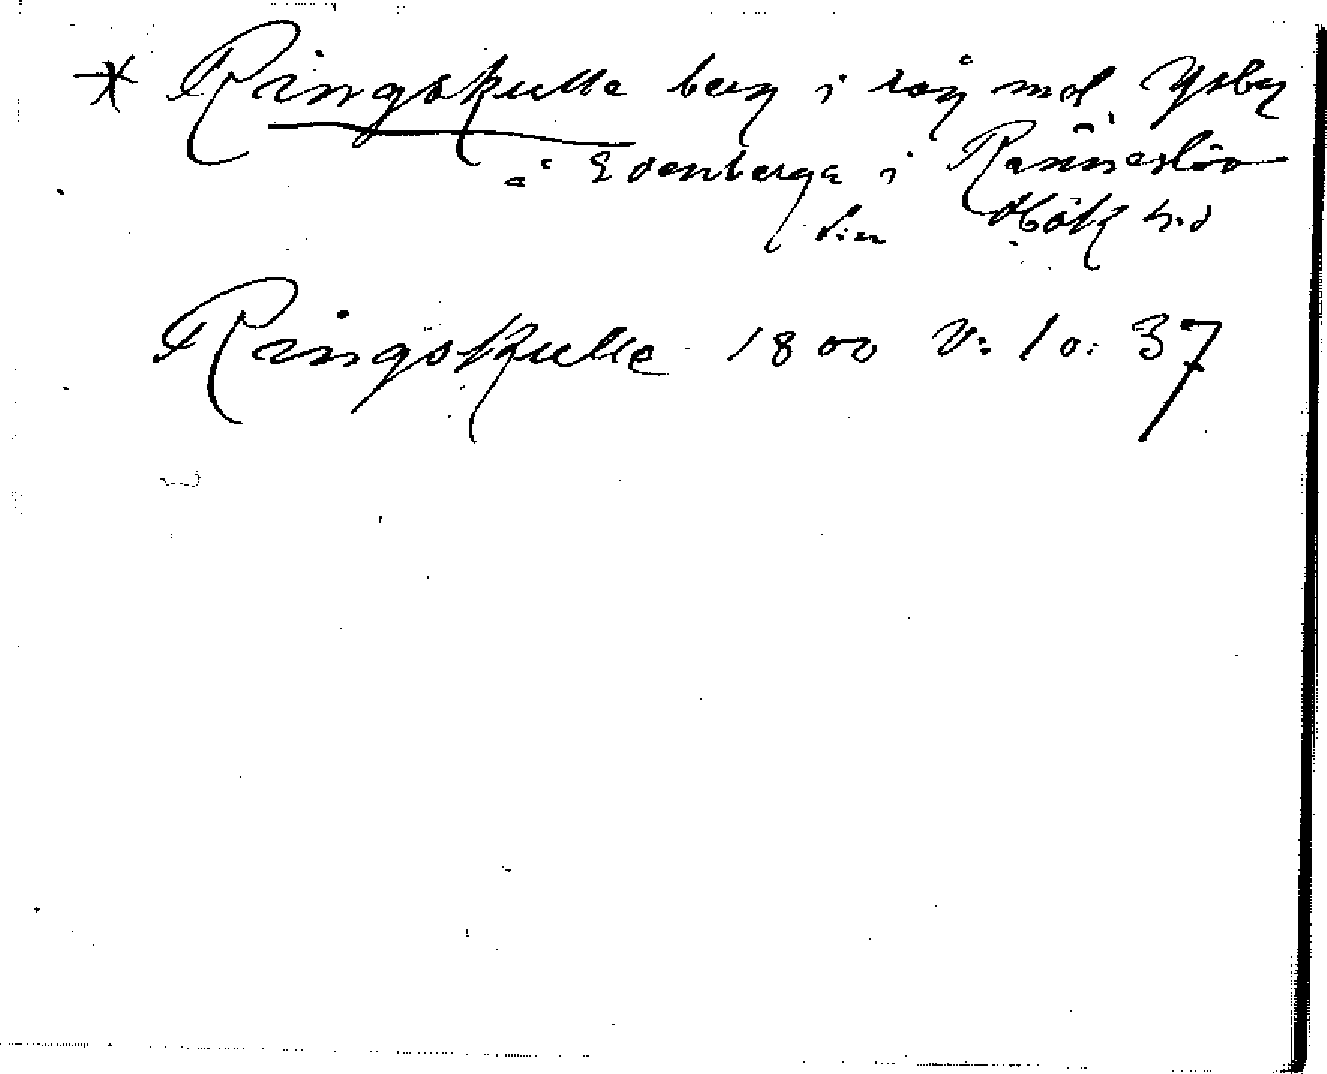 * Ringskulle berg i råg mel. Ysby
å Edenberga i Ränneslöv
sn Hök hd
Ringskulle 1800 V: 10: 37